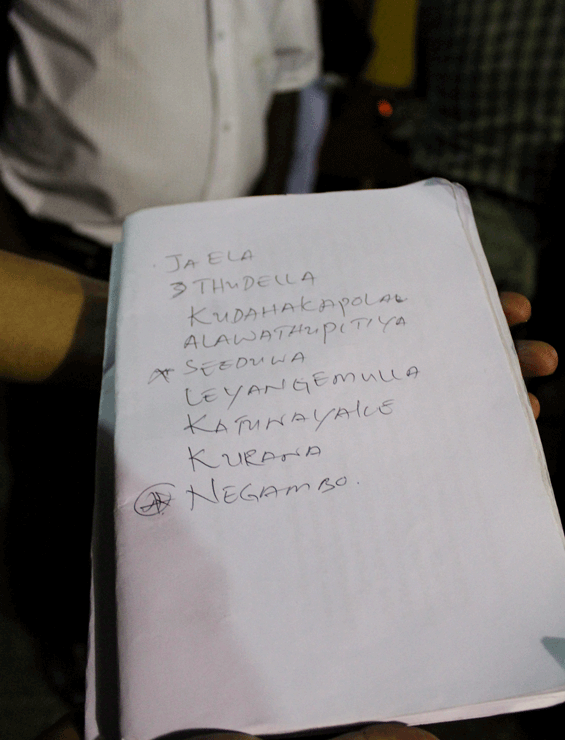 JAELA
3 THUDELLA
KUDAHAKAPOLAE
ALAWATHUPITIYA
SEEDUWA
LEYANGEMULLA
KATUNAYAKE
KURANA
NEGAMBO.